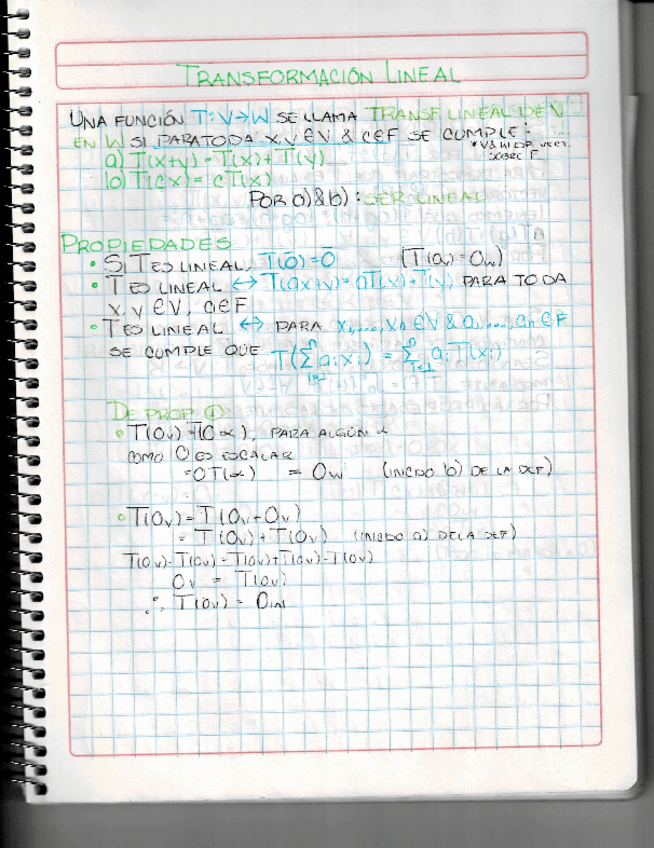 TRANSFORMACIÓN LINEAL
UNA FUNCIÓN T: V→W SE LLAMA TRANSF. LINEAL DE V
EN W SI PARA TODA x, y ∈ V & c ∈ F SE CUMPLE:
*V & W ESP. VECT. SOBRE F
a) T(x+y) = T(x) + T(y)
b) T(cx) = cT(x)
POR a) & b) : SER LINEAL
PROPIEDADES
• SI T ES LINEAL, T(0̄) = 0̄ (T(0ᵥ) = 0w)
• T ES LINEAL ↔ T(ax+y) = aT(x) + T(y), PARA TODA
x, y ∈ V, a ∈ F
• T ES LINEAL ↔ PARA x₁,...,xₙ ∈ V & a₁,...,aₙ ∈ F
SE CUMPLE QUE T(∑ⁿᵢ₌₁ aᵢxᵢ) = ∑ⁿᵢ₌₁ aᵢT(xᵢ)
DE PROP. ①
• T(0ᵥ) = T(0α), PARA ALGÚN α
COMO 0 ES ESCALAR
= 0T(α) = 0w (INCISO b) DE LA DEF)
• T(0ᵥ) = T(0ᵥ+0ᵥ)
= T(0ᵥ) + T(0ᵥ) (INCISO a) DE LA DEF)
T(0ᵥ) - T(0ᵥ) = T(0ᵥ) + T(0ᵥ) - T(0ᵥ)
0ᵥ = T(0ᵥ)
∴ T(0ᵥ) = 0w